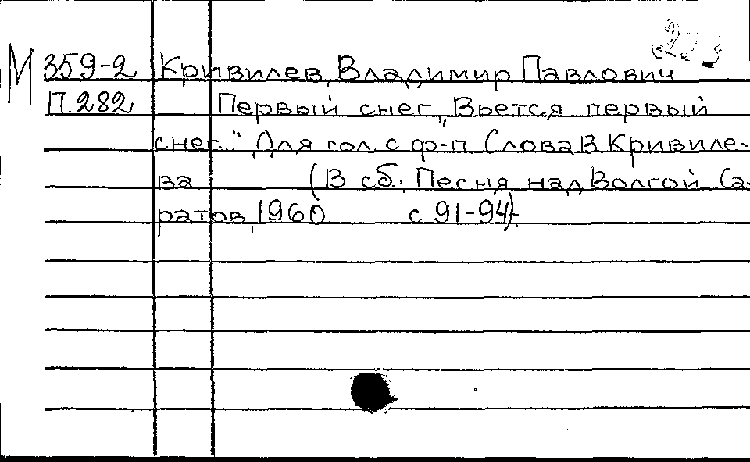 М 359-2 Кривилев, Владимир Павлович
П.282 Первый снег. „Вьется первый
снег..." Для гол. с ф-п. Слова В. Кривиле-
ва (В сб.: Песня над Волгой. Са-
ратов, 1960 с 91-94).